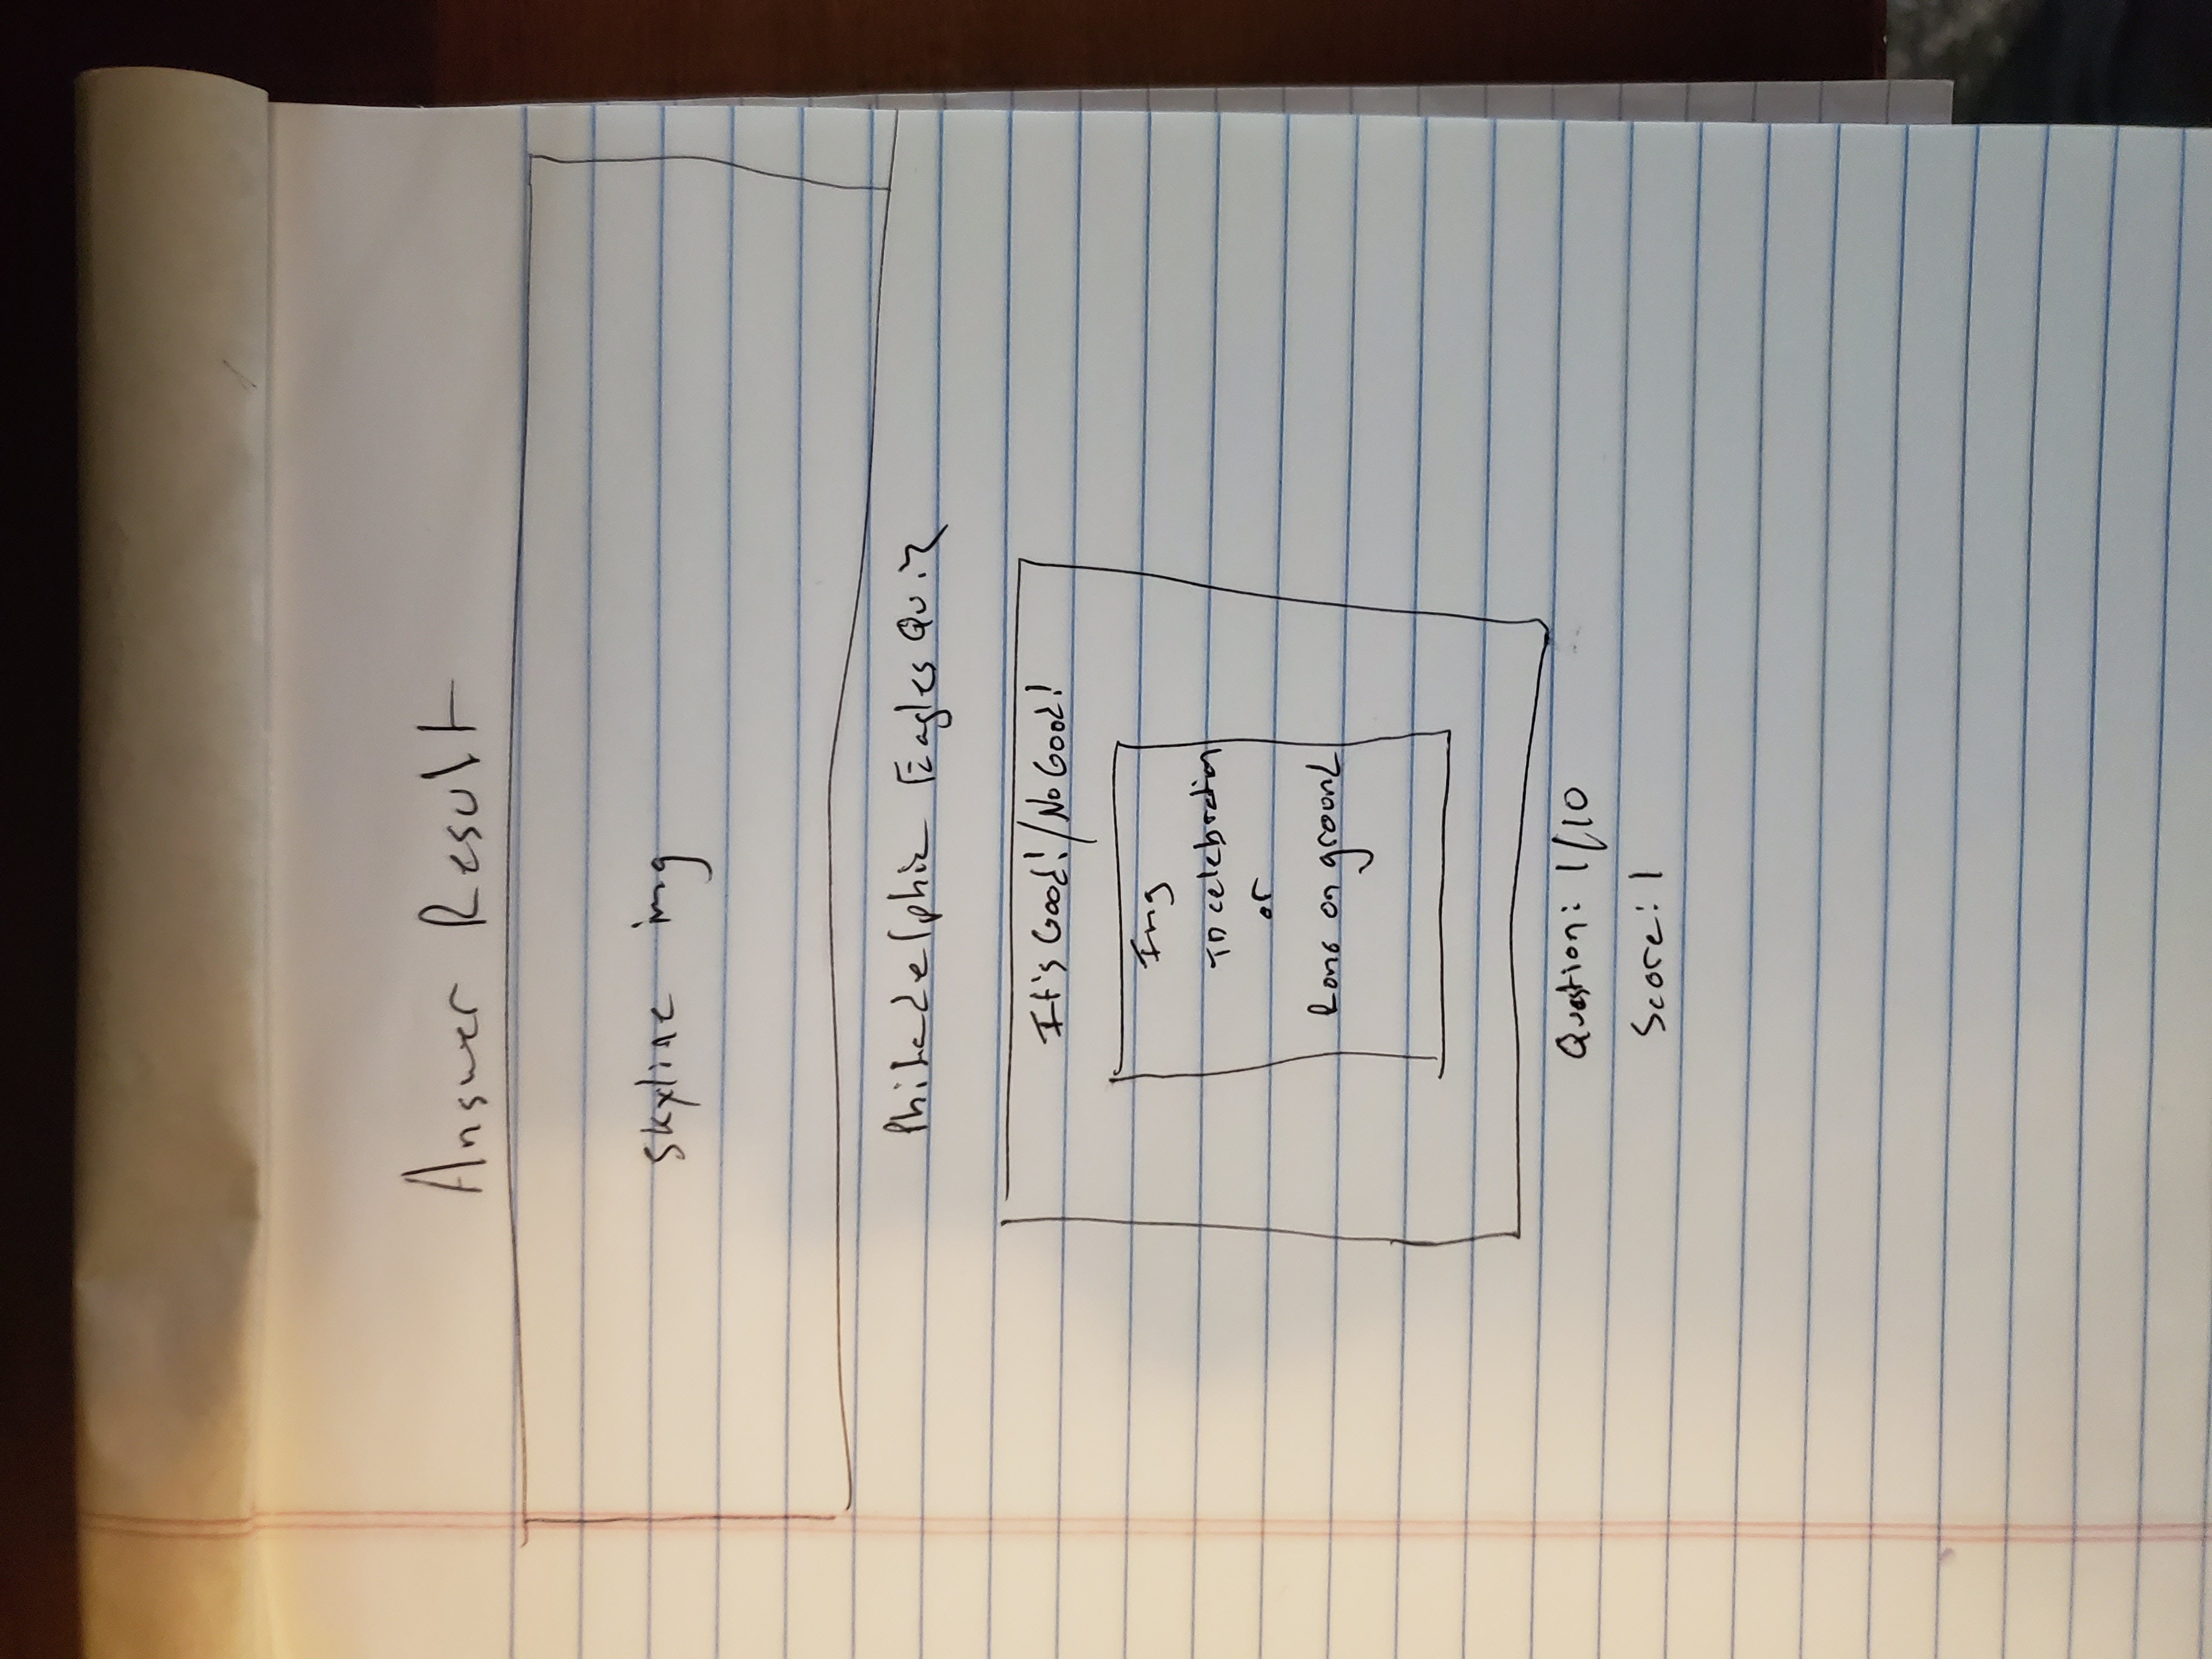 Answer Result
skyline img
Philadelphia Eagles Quiz
It's Good!/No Good!
Img
TD celebration
or
on ground
Question: 1/10
Score: 1